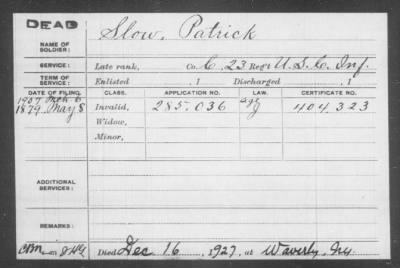 DEAD
Slow, Patrick
NAME OF SOLDIER:
SERVICE: Late rank, Co. C, 23 Regt U. S. C. Inf.
TERM OF SERVICE: Enlisted , 1 Discharged , 1
DATE OF FILING. CLASS. APPLICATION NO. LAW. CERTIFICATE NO.
1907 Mch 6
1879 May 8 Invalid, 285.036 age 404.323
Widow,
Minor,
ADDITIONAL SERVICES:
REMARKS:
Died Dec 16 , 1927, at Waverly, Ky.